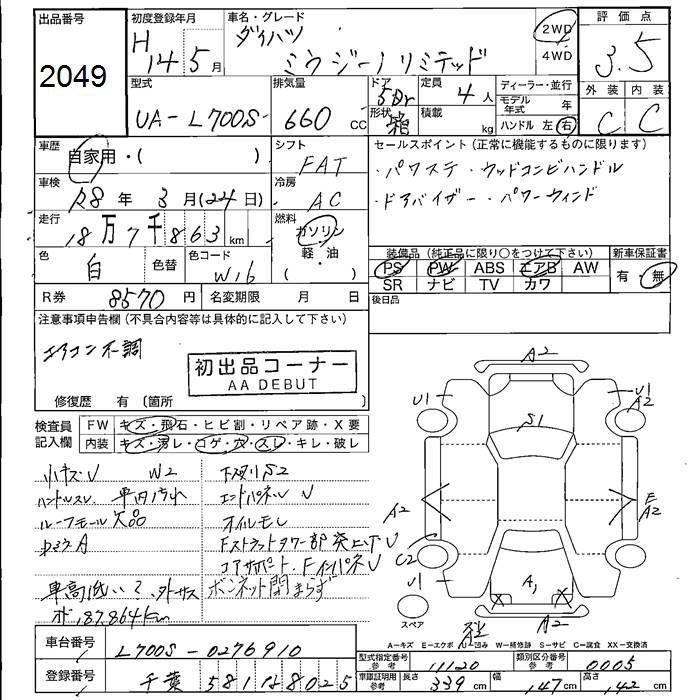 出品番号
2049
初度登録年月
H 14年 5月
車名・グレード
ダイハツ
ミラジーノリミテッド
2WD
4WD
評価点
3.5
型式
UA-L700S
排気量
660 CC
ドア 5Dr
形状 箱
定員 4人
積載 kg
ディーラー・並行
モデル年式 年
ハンドル 左・右
外装 内装
C C
車歴
自家用・( )
シフト
FAT
セールスポイント (正常に機能するものに限ります)
・パワステ ・ウッドコンビハンドル
・ドアバイザー ・パワーウィンド
車検
R8年 3月(24日)
冷房
AC
走行
18万7千863km
燃料
ガソリン
軽・油
色
白
色替
色コード
W16
装備品 (純正品に限り○をつけて下さい)
PS PW ABS エアB AW
SR ナビ TV カワ
新車保証書
有・無
R券 8570円
名変期限 月 日
後日品
注意事項申告欄(不具合内容等は具体的に記入して下さい)
エアコン不調
初出品コーナー
AA DEBUT
修復歴 有〔箇所
検査員記入欄
FW キズ・飛石・ヒビ割・リペア跡・X要
内装 キズ・汚レ・コゲ・穴・スレ・キレ・破レ
小キズU W2
ハンドルスレ 車内汚れ
ルーフモール欠品
下廻りS2
エンドパネルU
オイルモレ
Fストラットタワー部突上げU
コアサポート FインパネU
車高低い?、外サス
ボンネット閉まらず
オド 187,864km
A2
U1
U1
A2
S1
A2
E
A2
C2
U1
U
A1
X
X
A2
スペア
A-キズ E-エクボ U-凹み W-補修跡 S-サビ C-腐食 XX-交換済
車台番号
L700S-0276910
登録番号
千葉 581 は 8025
型式指定番号 参考 11120
類別区分番号 参考 0005
車庫証明用 参考 長さ 339cm 幅 147cm 高さ 142cm